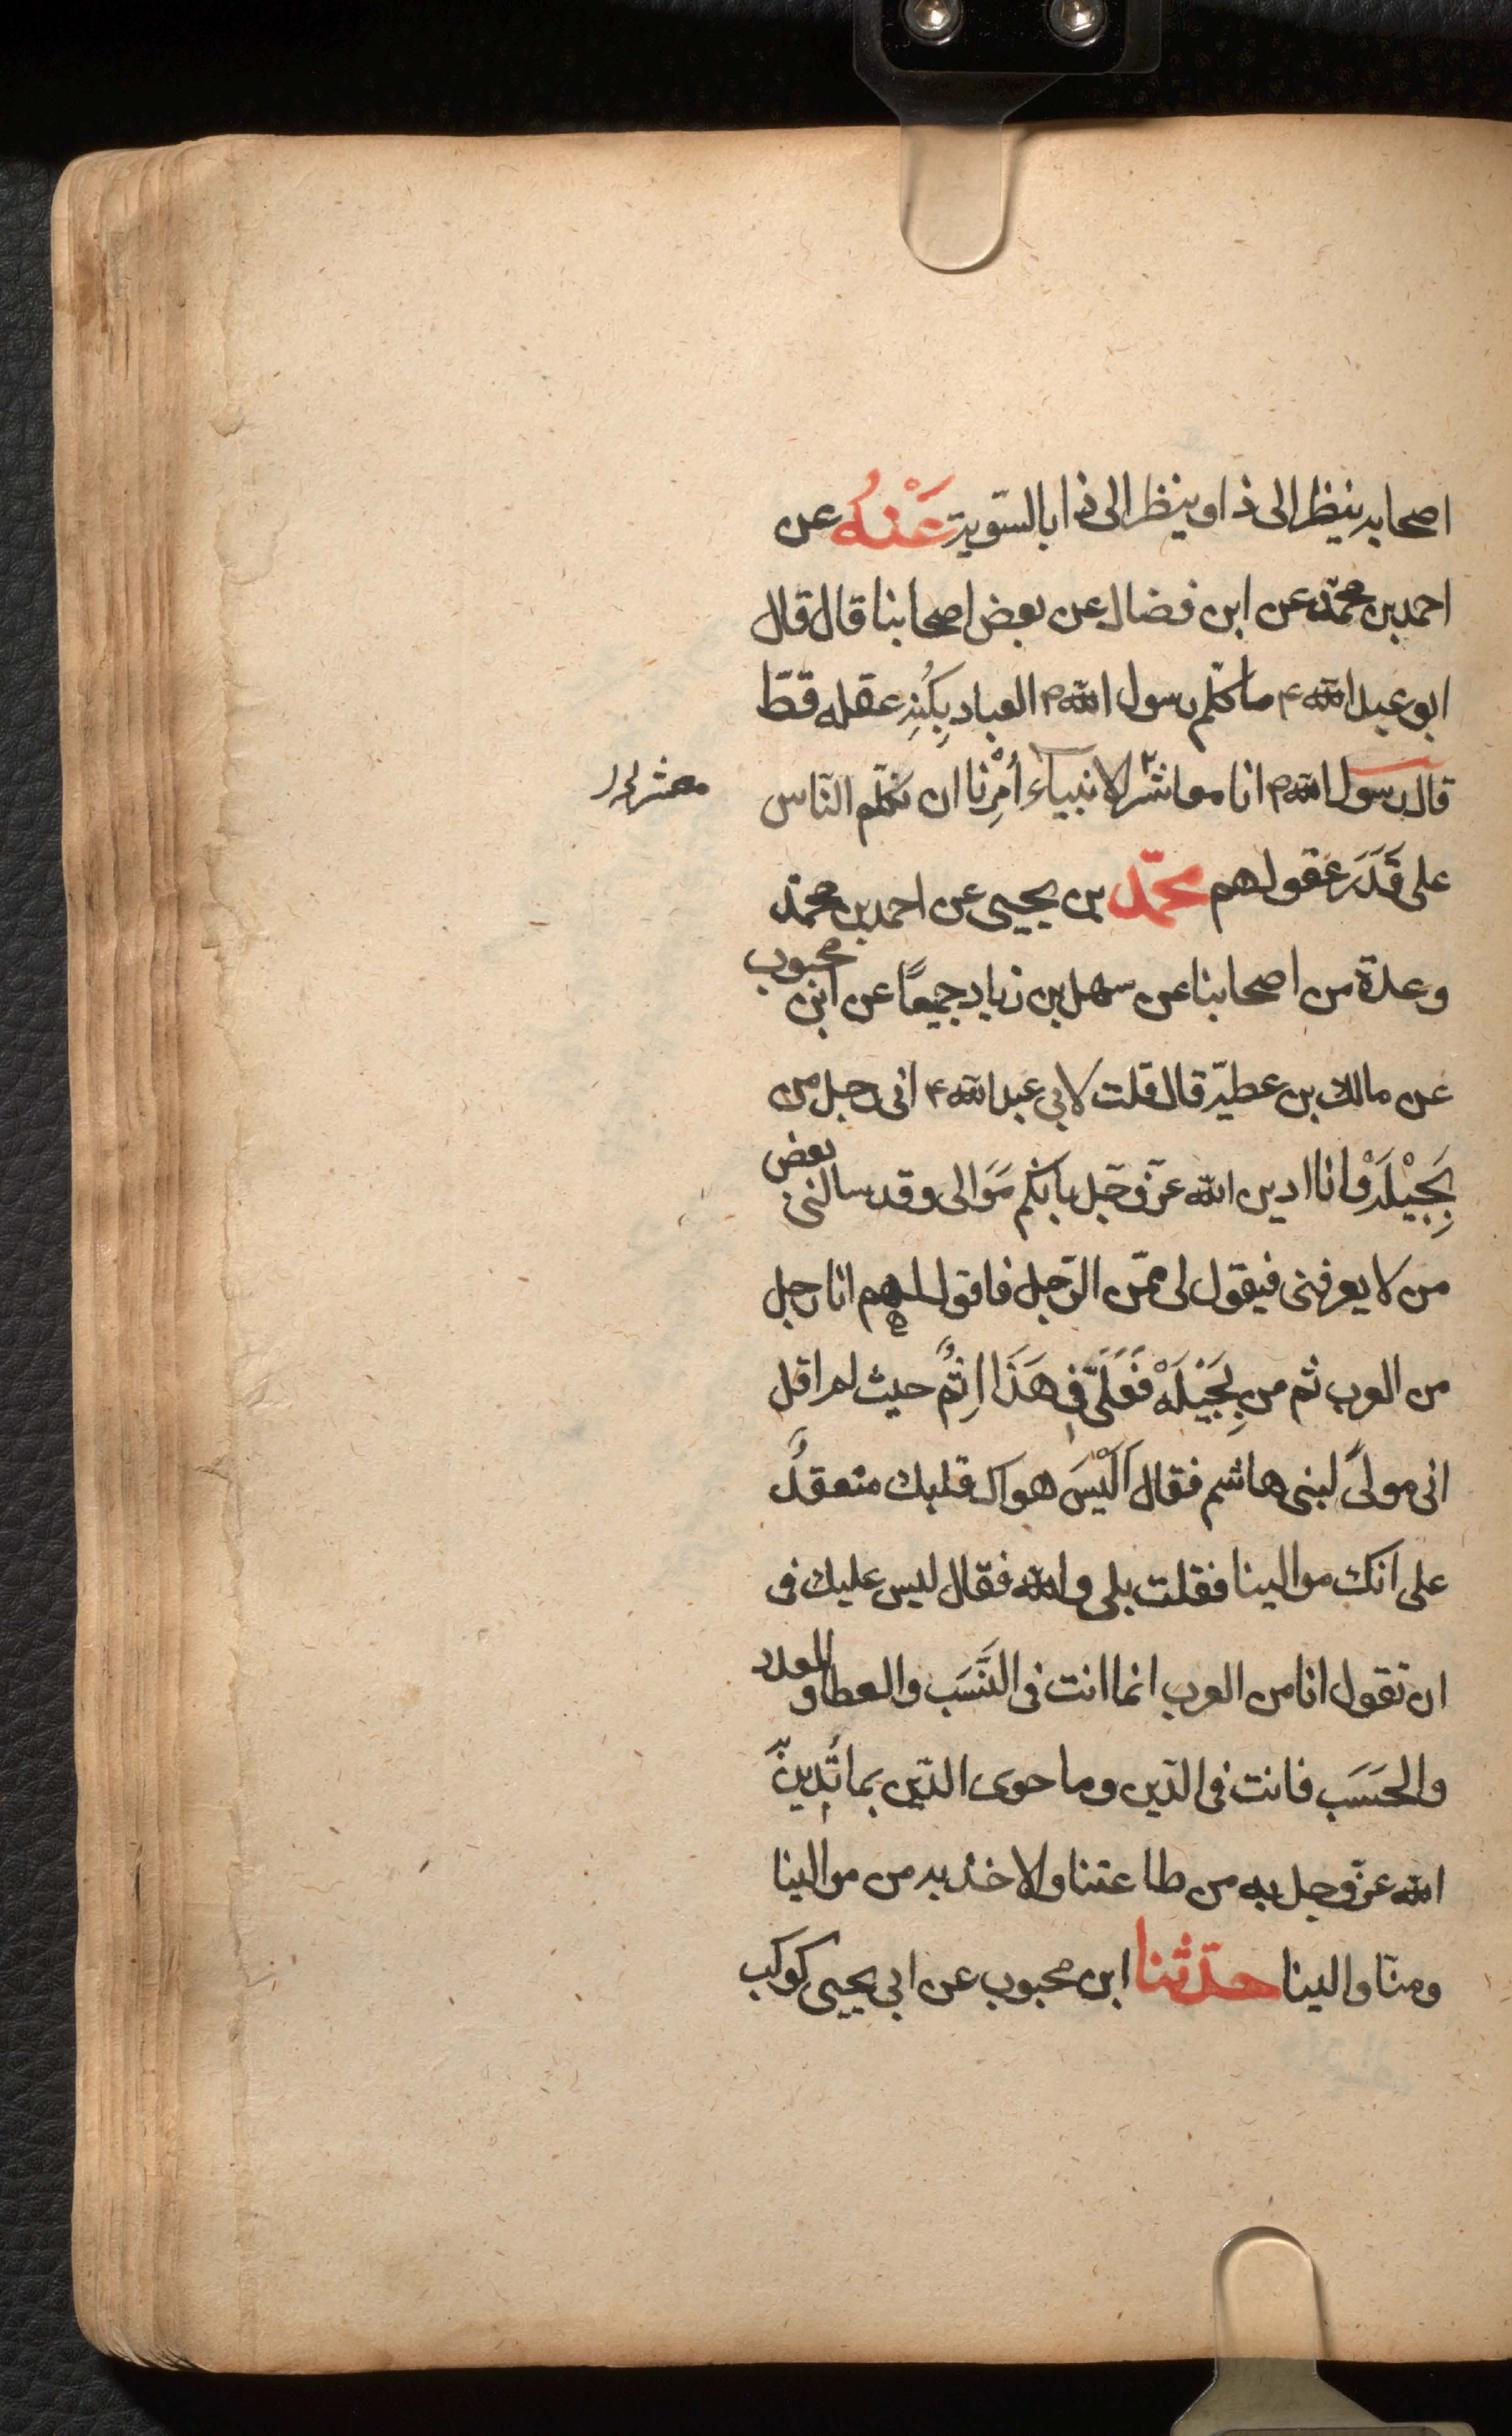 اصحابه ينظر الى ذا وينظر الى ذا بالسّوية عَنْهُ عن
احمد بن محمّد عن ابن فضال عن بعض اصحابنا قال قال
ابو عبد الله ع ما كلّم رسول الله ص العباد بِكُنْهِ عقله قطّ
قال رسول الله ص انا معاشر الانبياء أُمِرْنا ان نكلّم النّاس
معشر
على قَدَرِ عقولهم محمّد بن يحيى عن احمد بن محمّد
وعدة من اصحابنا عن سهل بن زياد جميعًا عن ابن محبوب
عن مالك بن عطيّة قال قلت لابي عبد الله ع انى رجل من
بَجِيْلَةْ وانا ادين الله عزّ وجّل بانّكم مَوَالى وقد سالنى بعض
من لا يعرفنى فيقول لى ممّن الرّجل فاقول لهم انا رجل
من العرب ثم من بَجِيْلَهْ فَعَلَىَّ فِى هَذَا اِثمٌ حيث لم اقل
انى مولىً لبنى هاشم فقال اَلَيْسَ هواك قلبك منعقدٌ
على انك موالينا فقلت بلى والله فقال ليس عليك فى
ان تقول انا من العرب انما انت فى النَّسَب والعطا والعدد
والحَسَب فانت فى الدّين وما حوى الدّين بما تَدِينُ
الله عزّ وجل به من طاعتنا والاخذ به من موالينا
ومنّا والينا حدّثنا ابن محبوب عن ابى يحيى كوكب